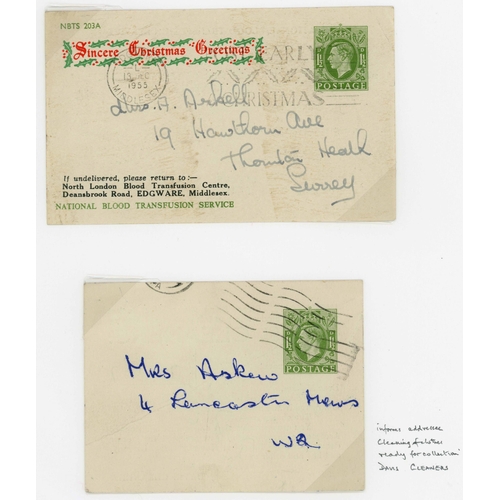 NBTS 203A
Sincere Christmas Greetings
EARLY
CHRISTMAS
1955
MIDDLESEX
1½
POSTAGE
Mrs. A. Arkell
19 Hawthorn Ave
Thornton Heath
Surrey
If undelivered, please return to:—
North London Blood Transfusion Centre,
Deansbrook Road, EDGWARE, Middlesex.
NATIONAL BLOOD TRANSFUSION SERVICE
POSTAGE
Mrs Askew
4 Lancaster Mews
W2
informs addressee
Cleaning
ready for collection
DAVIS CLEANERS